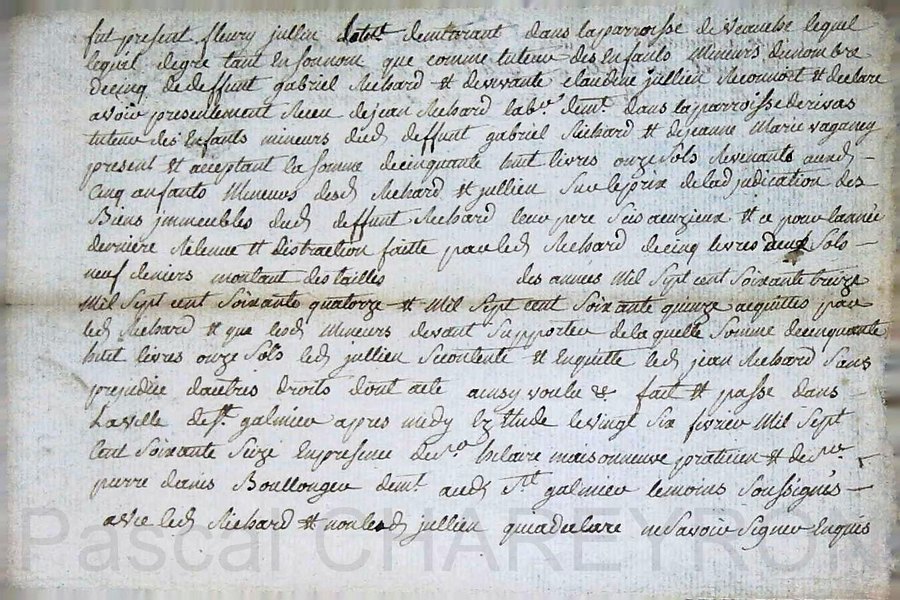 fut present fleury jullin demeurant dans la parroisse de veauche lequel
lequel degre tant En Sonnom que comme tuteur des Enfants Mineurs dunombre
decinq de deffunt gabriel Richard & de vivante claudine jullien Reconnoit & declare
avoir presentement Receu de jean Richard lab.r dem.t dans la parroisse de rivas
tuteur des Enfants mineurs dud. deffunt gabriel Richard & de jeanne Marie vaganey
present & acceptant la Somme decinquante huit livres onze Sols Revenants auxd. –
Cinq anfants Mineurs desd. Richard & jullien Sur le prix de ladjudication des
Biens immeubles dud. deffunt Richard leur pere & ce pour lannée
derniere Retenue & distraction faitte par led. Richard decinq livres deux Sols –
neuf deniers montant des tailles des années Mil Sept cent Soixante treize
Mil Sept cent Soixante quatorze & Mil Sept cent Soixante quinze acquittés par
led. Richard & que lesd. Mineurs devant Supporter de la quelle Somme decinquante
huit livres onze Sols led. jullien Secontente & Enquitte led. jean Richard Sans
prejudice dautres droits dont acte ainsy voulu & fait & passe dans
La ville de S.t galmier apres midy Ez Etude le vingt Six fevrier Mil Sept
Cent Soixante Seize En presence de S.r hilaire maisonneuve praticien & de S.r
pierre denis Boullonger dem.t aud. S.t galmier temoins Soussignés –
avec led. Richard & non led. jullien qui a declaré ne Savoir Signer Enquis
Pascal CHAREYRON